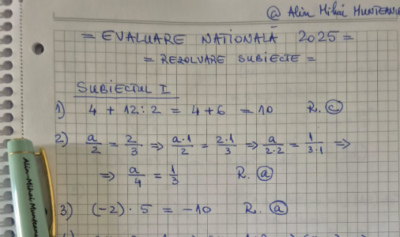 @ Alin Mihai Munteanu
= EVALUARE NATIONALĂ 2025 =
= REZOLVARE SUBIECTE =
SUBIECTUL I
1) 4 + 12 : 2 = 4 + 6 = 10 R. ⓒ
2) a/2 = 2/3 ⇒ a·1/2 = 2·1/3 ⇒ a/2·2 = 1/3·1 ⇒
⇒ a/4 = 1/3 R. ⓐ
3) (-2) · 5 = -10 R. ⓐ
Alin-Mihai Munteanu